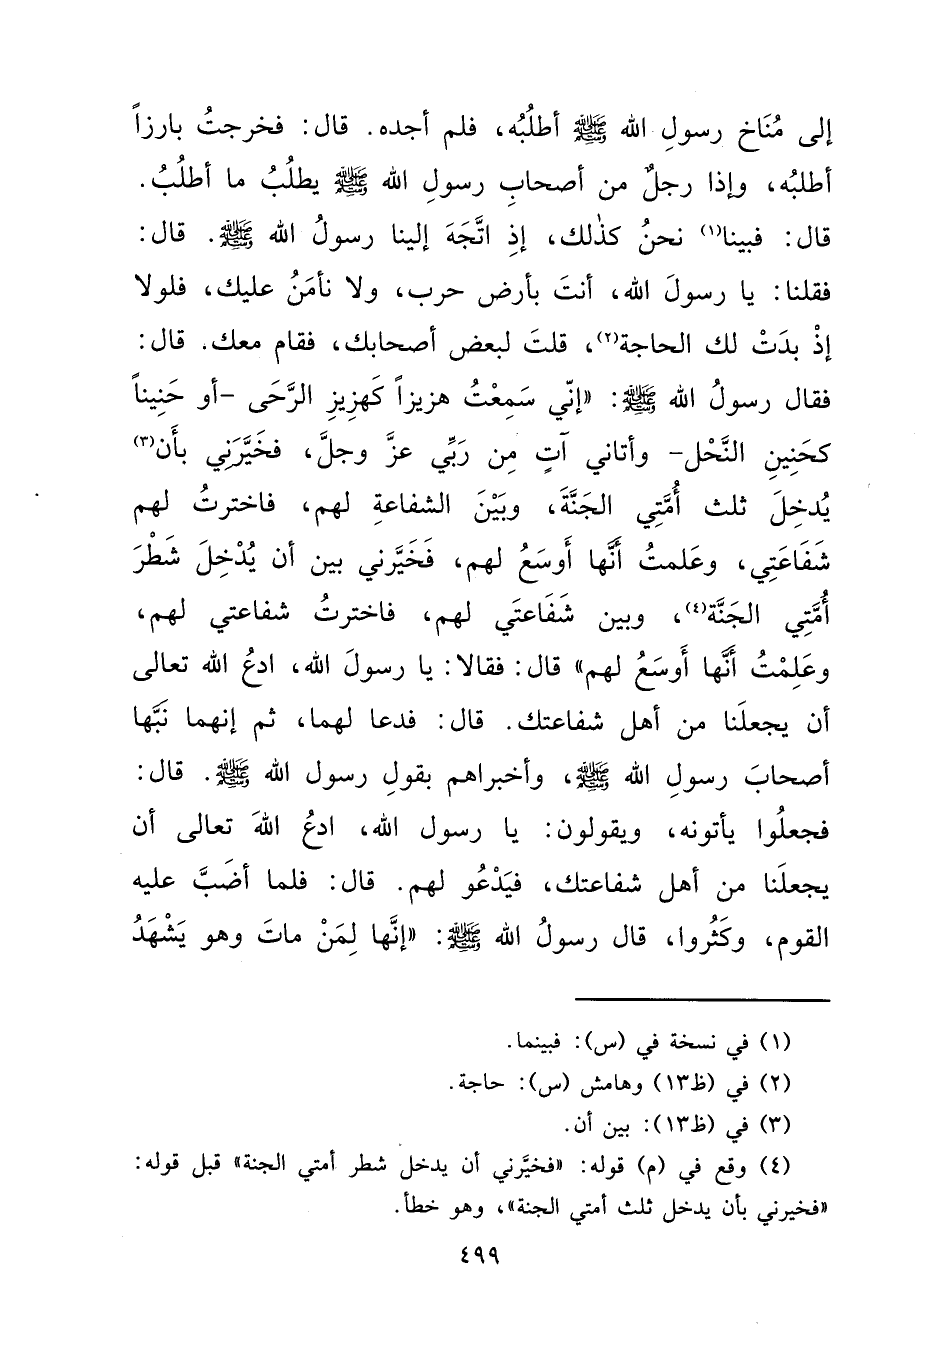 إلى مُنَاخ رسولِ الله ﷺ أطلُبُه، فلم أجده. قال: فخرجتُ بارزاً
أطلبُه، وإذا رجلٌ من أصحابِ رسولِ الله ﷺ يطلُبُ ما أطلُبُ.
قال: فبينا(١) نحنُ كذٰلك، إذِ اتَّجَهَ إلينا رسولُ الله ﷺ. قال:
فقلنا: يا رسولَ الله، أنتَ بأرض حرب، ولا نأمَنُ عليك، فلولا
إذْ بدَتْ لك الحاجة(٢)، قلتَ لبعض أصحابك، فقام معك. قال:
فقال رسولُ الله ﷺ: «إنّي سَمِعْتُ هزيزاً كَهزِيزِ الرَّحَى -أو حَنِيناً
كحَنِينِ النَّحْل- وأتاني آتٍ مِن رَبِّي عزَّ وجلَّ، فخَيَّرَنِي بأن(٣)
يُدخِلَ ثلث أُمَّتِي الجَنَّةَ، وبَيْنَ الشفاعةِ لهم، فاخترتُ لهم
شَفَاعَتِي، وعَلمتُ أَنَّها أَوسَعُ لهم، فَخَيَّرني بين أن يُدْخِلَ شَطْرَ
أُمَّتِي الجَنَّة(٤)، وبين شَفَاعتَي لهم، فاخترتُ شفاعتي لهم،
وعَلِمْتُ أَنَّها أَوسَعُ لهم» قال: فقالا: يا رسولَ الله، ادعُ الله تعالى
أن يجعلَنا من أهل شفاعتك. قال: فدعا لهما، ثم إنهما نَبَّها
أصحابَ رسولِ الله ﷺ، وأخبراهم بقولِ رسول الله ﷺ. قال:
فجعلُوا يأتونه، ويقولون: يا رسول الله، ادعُ اللهَ تعالى أن
يجعلَنا من أهل شفاعتك، فيَدْعُو لهم. قال: فلما أضَبَّ عليه
القوم، وكَثُروا، قال رسولُ الله ﷺ: «إنَّها لِمَنْ ماتَ وهو يَشْهَدُ
(١) في نسخة في (س): فبينما.
(٢) في (ظ١٣) وهامش (س): حاجة.
(٣) في (ظ١٣): بين أن.
(٤) وقع في (م) قوله: «فخيَّرني أن يدخل شطر أمتي الجنة» قبل قوله:
«فخيرني بأن يدخل ثلث أمتي الجنة»، وهو خطأ.
٤٩٩